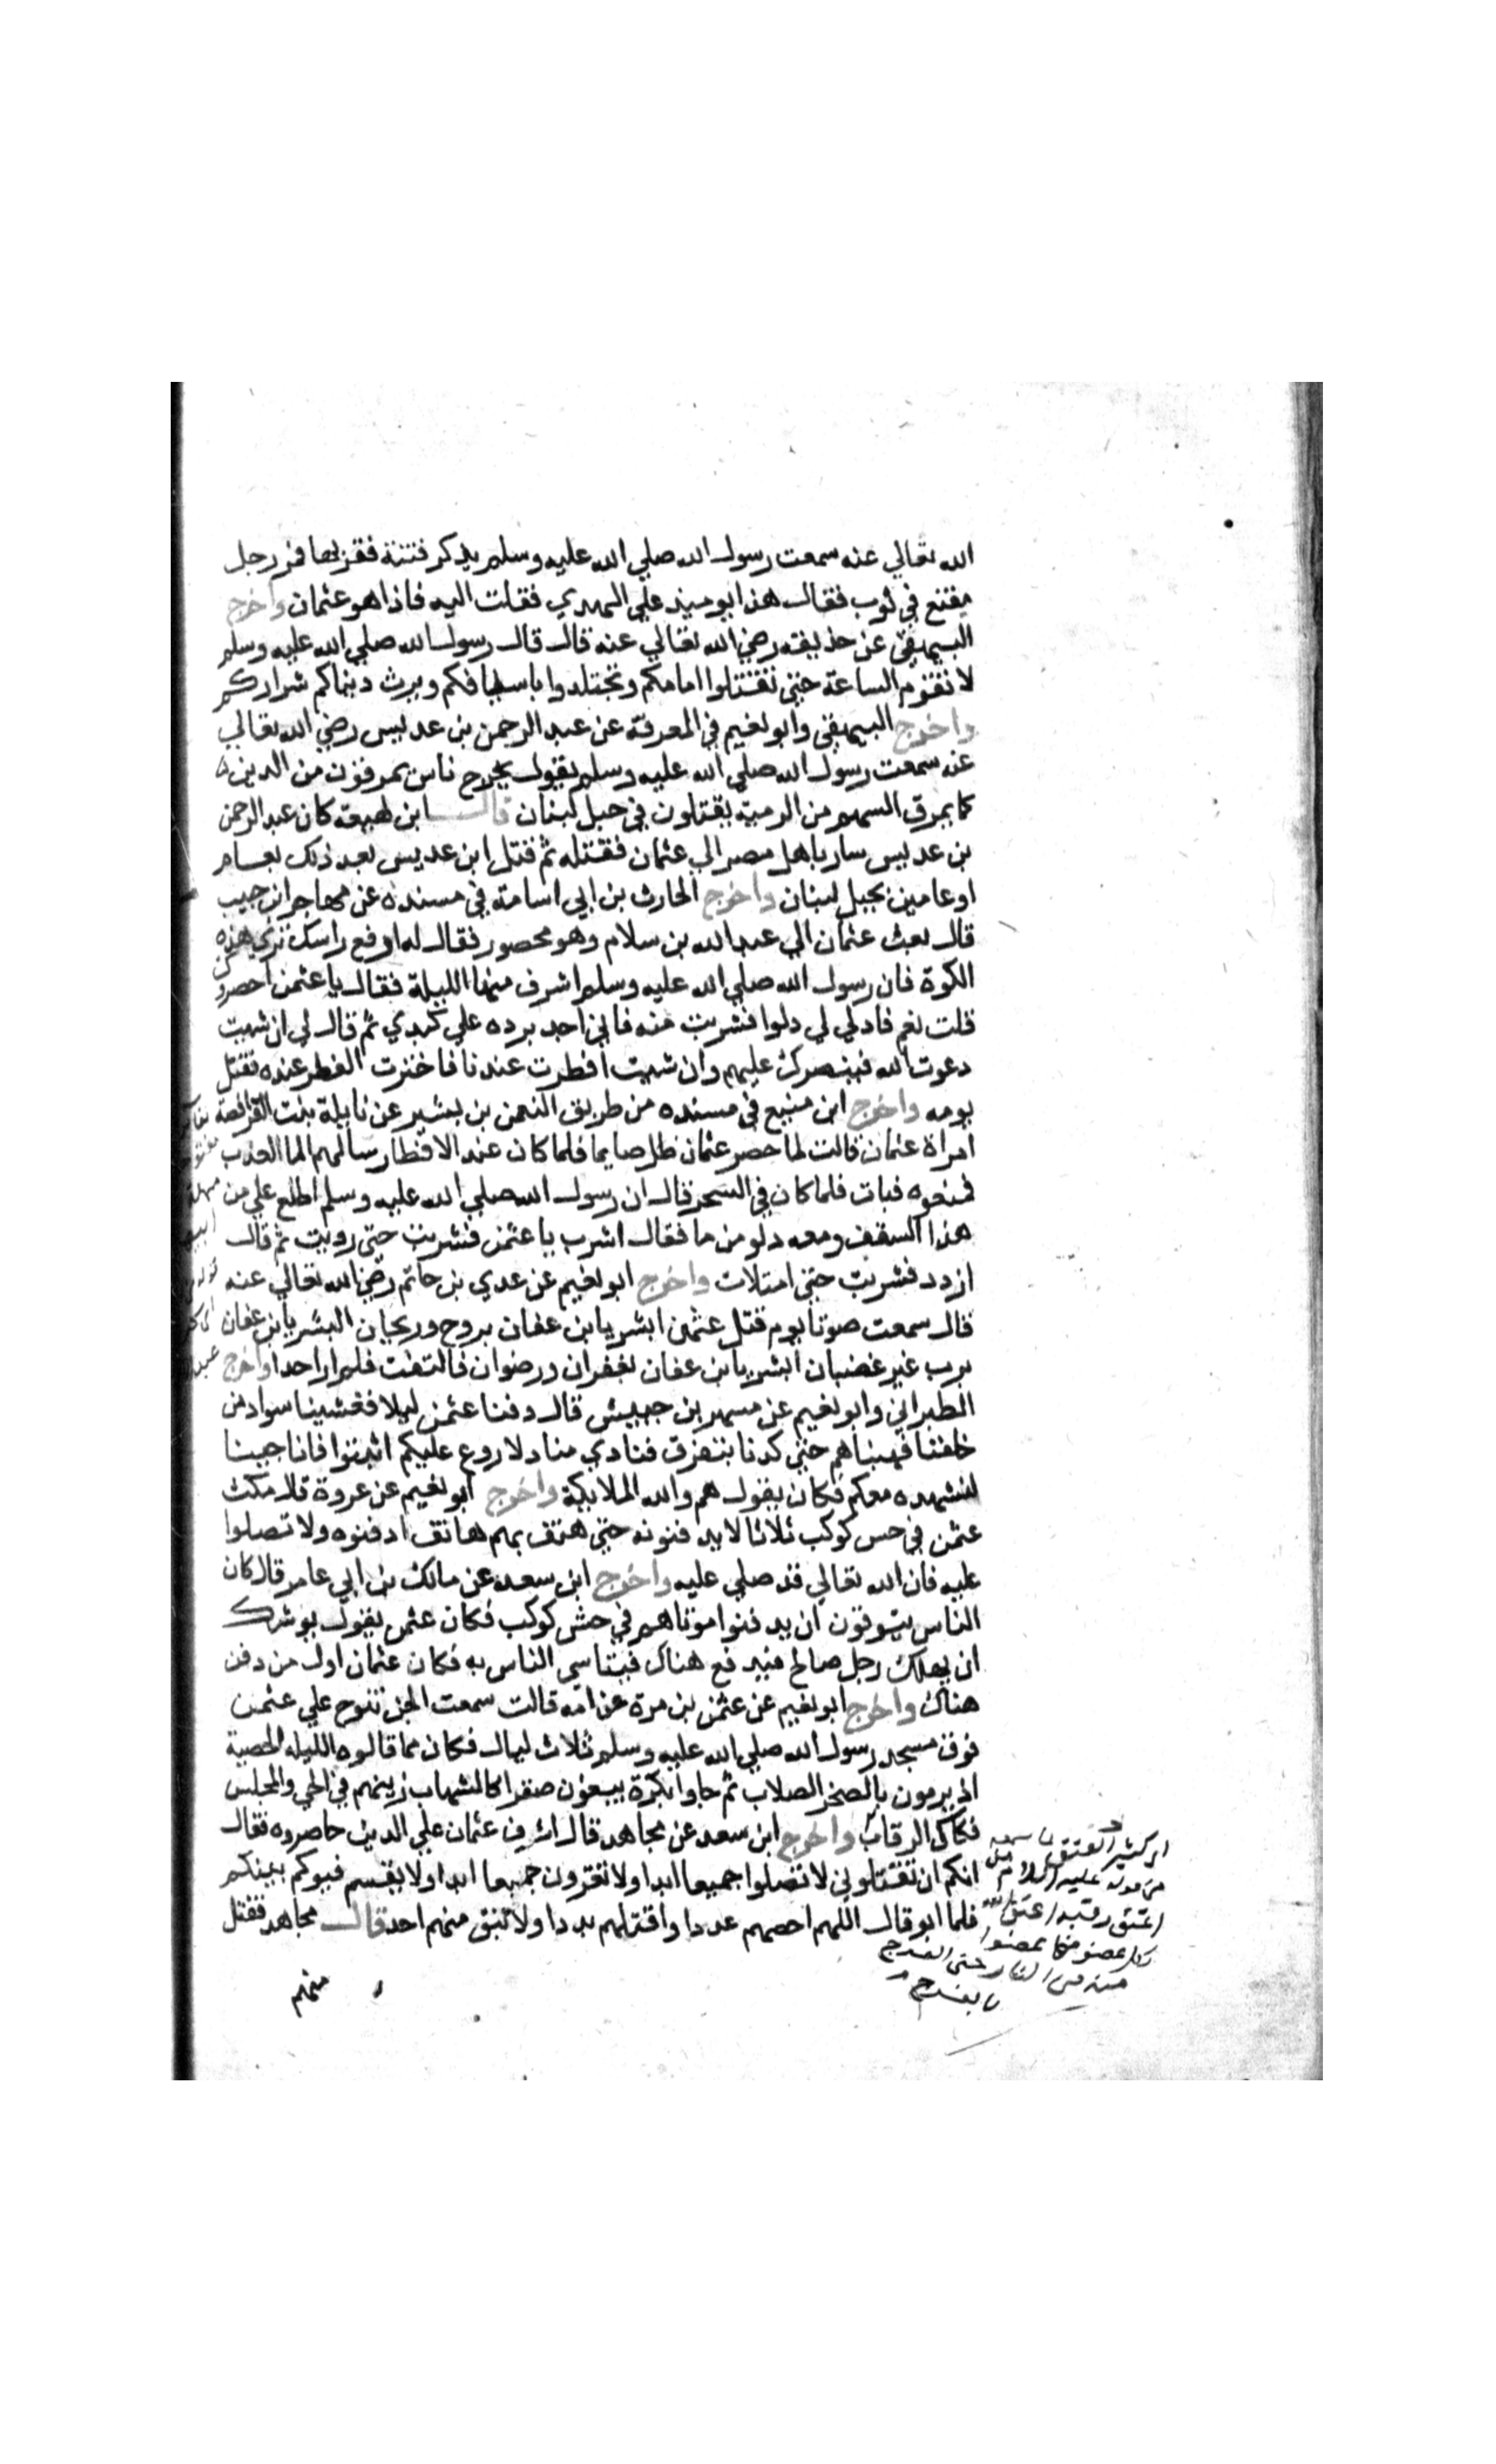 الله تعالي عنه سمعت رسول الله صلي الله عليه وسلم يذكر فتنة فقربها فمر رجل
مقنع في ثوب فقال هذا يوميذ علي الهدي فقلت اليه فاذا هو عثمان واخرج
البيهقي عن حذيفه رضي الله تعالي عنه قال قال رسول الله صلي الله عليه وسلم
لا تقوم الساعة حتي تقتتلوا امامكم وتجتلدوا باسيافكم ويرث دنياكم شراركم
واخرج البيهقي وابو نعيم في المعرفة عن عبد الرحمن بن عديس رضي الله تعالي
عنه سمعت رسول الله صلي الله عليه وسلم يقول يخرج ناس يمرقون من الدين
كما يمرق السهم من الرمية يقتلون في جبل لبنان قال ابن لهيعة كان عبد الرحمن
بن عديس سار باهل مصر الي عثمان فقتله ثم قتل ابن عديس بعد ذلك بعام
او عامين بجبل لبنان واخرج الحارث بن ابي اسامة في مسنده عن مهاجر ابن حبيب
قال بعث عثمان الي عبد الله بن سلام وهو محصور فقال له ارفع راسك تري هذه
الكوة فان رسول الله صلي الله عليه وسلم اشرف منها الليلة فقال يا عثمن احصروك
قلت نعم فادلي لي دلوا فشربت منه فاني اجد برده علي كبدي ثم قال لي ان شيت
دعوت الله فينصرك عليهم وان شيت افطرت عندنا فاخترت الفطر عنده فقتل
يومه واخرج ابن منيع في مسنده من طريق النعمن بن بشير عن نايلة بنت الفرافصة
امراة عثمان قالت لما حصر عثمان ظل صايما فلما كان عند الافطار سالهم الما العذب
فمنعوه فبات فلما كان في السحر قال ان رسول الله صلي الله عليه وسلم اطلع علي من
هذا السقف ومعه دلو من ما فقال اشرب يا عثمن فشربت حتي رويت ثم قال
ازدد فشربت حتي امتلات واخرج ابو نعيم عن عدي بن حاتم رضي الله تعالي عنه
قال سمعت صوتا يوم قتل عثمن ابشر يا ابن عفان بروح وريحان ابشر يا ابن عفان
برب غير غضبان ابشر يا ابن عفان بغفران ورضوان فالتفت فلم ار احدا واخرج
الطبراني وابو نعيم عن مسهر بن حبيش قال دفنا عثمن ليلا فغشينا سواد من
خلفنا فهبناهم حتي كدنا نتفرق فنادي مناد لا روع عليكم اثبتوا فانا جينا
لنشهده معكم فكان يقول هم والله الملايكة واخرج ابو نعيم عن عروة قال مكث
عثمن في حس كوكب ثلاثا لا يدفنونه حتي هتف بهم هاتف ادفنوه ولا تصلوا
عليه فان الله تعالي قد صلي عليه واخرج ابن سعد عن مالك بن ابي عامر قال كان
الناس يتوقون ان يدفنوا موتاهم في حش كوكب فكان عثمن يقول يوشك
ان يهلك رجل صالح فيدفع هناك فيتاسي الناس به فكان عثمان اول من دفن
هناك واخرج ابو نعيم عن عثمن بن مرة عن امه قالت سمعت الجن تنوح علي عثمن
فوق مسجد رسول الله صلي الله عليه وسلم ثلاث ليال فكان مما قالوه الليله الحصبة
اذ يرمون بالصخر الصلاب ثم جاوا بكرة يبغون صقرا كالشهاب زينهم في الحي والمجلس
فكاك الرقاب واخرج ابن سعد عن مجاهد قال اشرف عثمان علي الذين حاصروه فقال
انكم ان تقتلوني لا تصلوا جميعا ابدا ولا تغزون جميعا ابدا ولا يقسم فيوكم بينكم
فلما ابو قال اللهم احصهم عددا واقتلهم بددا ولا تبق منهم احد قال مجاهد فقتل
منهم
اي كثير العتق
من اعتق رقبة اعتق الله
بكل عضو منها عضوا
منه من النار حتي الفرج
بالفرج